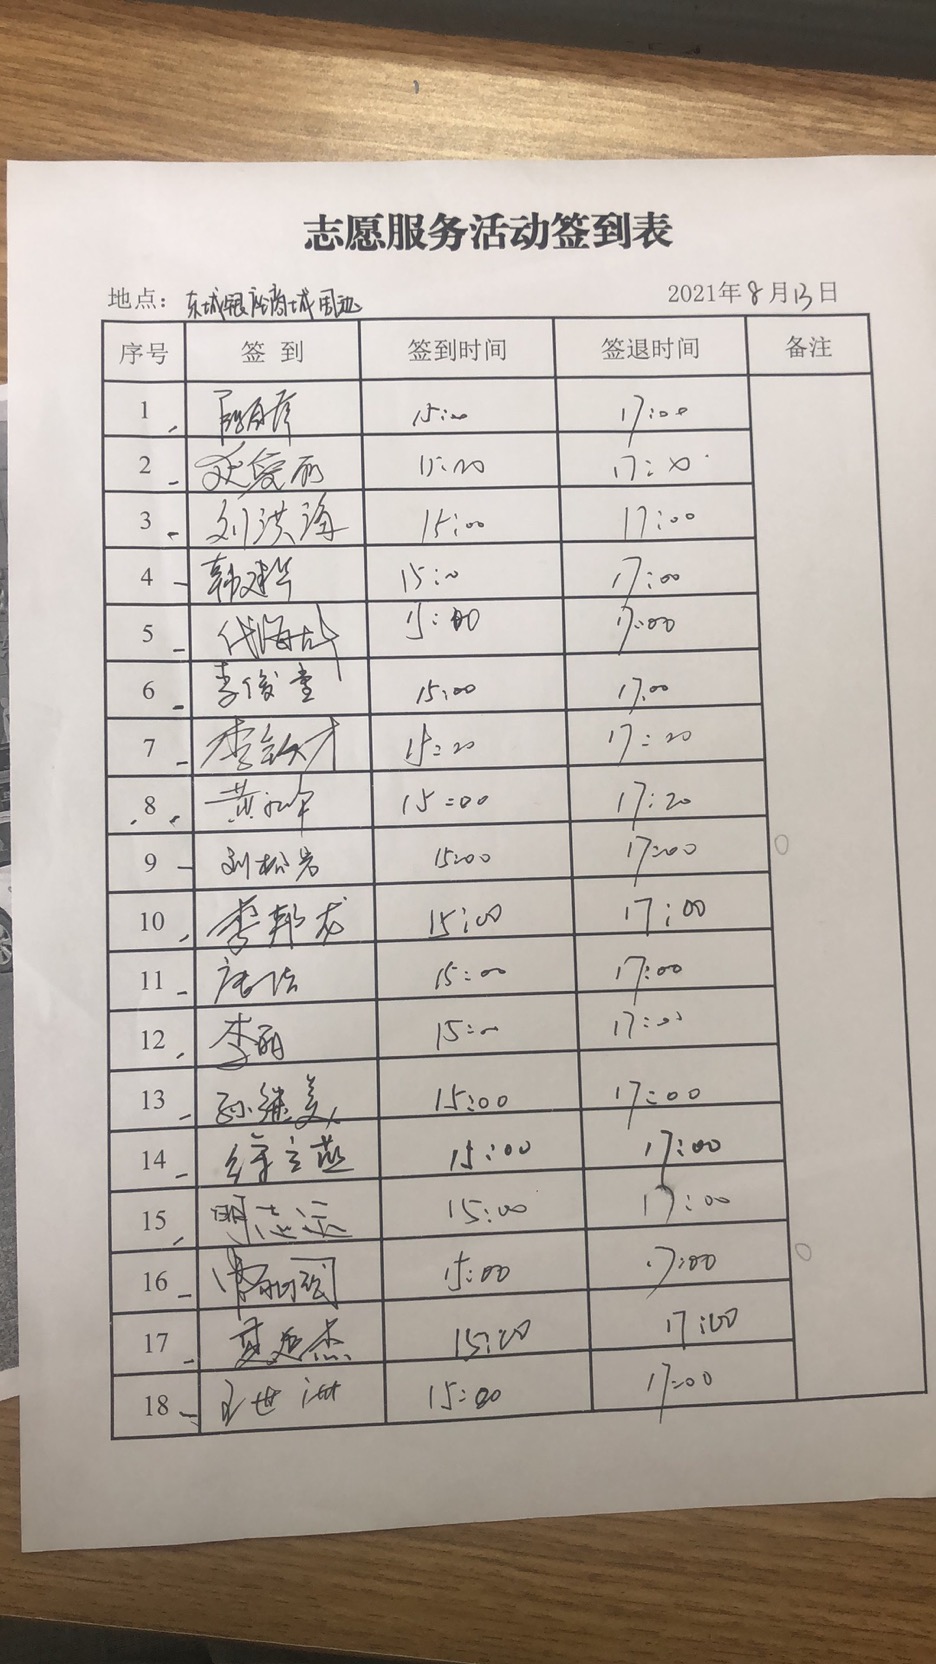 志愿服务活动签到表
地点：东城银座商城周边 2021年8月13日
序号 签到 签到时间 签退时间 备注
1 17:00
2
3 刘洪海 15:00 17:00
4 韩建华 17:00
5 代海 15:00 17:00
6 李俊 15:00 17:00
7 李 15:20 17:20
8 黄 15:00 17:20
9 刘松岩 15:00 17:00
10 李邦龙 15:00 17:00
11 15:00 17:00
12 李丽
13 孙继美 15:00 17:00
14 徐立燕 15:00 17:00
15 明志 15:00 17:00
16 15:00 17:00
17 夏延杰 17:00
18 王世洲 15:00 17:00